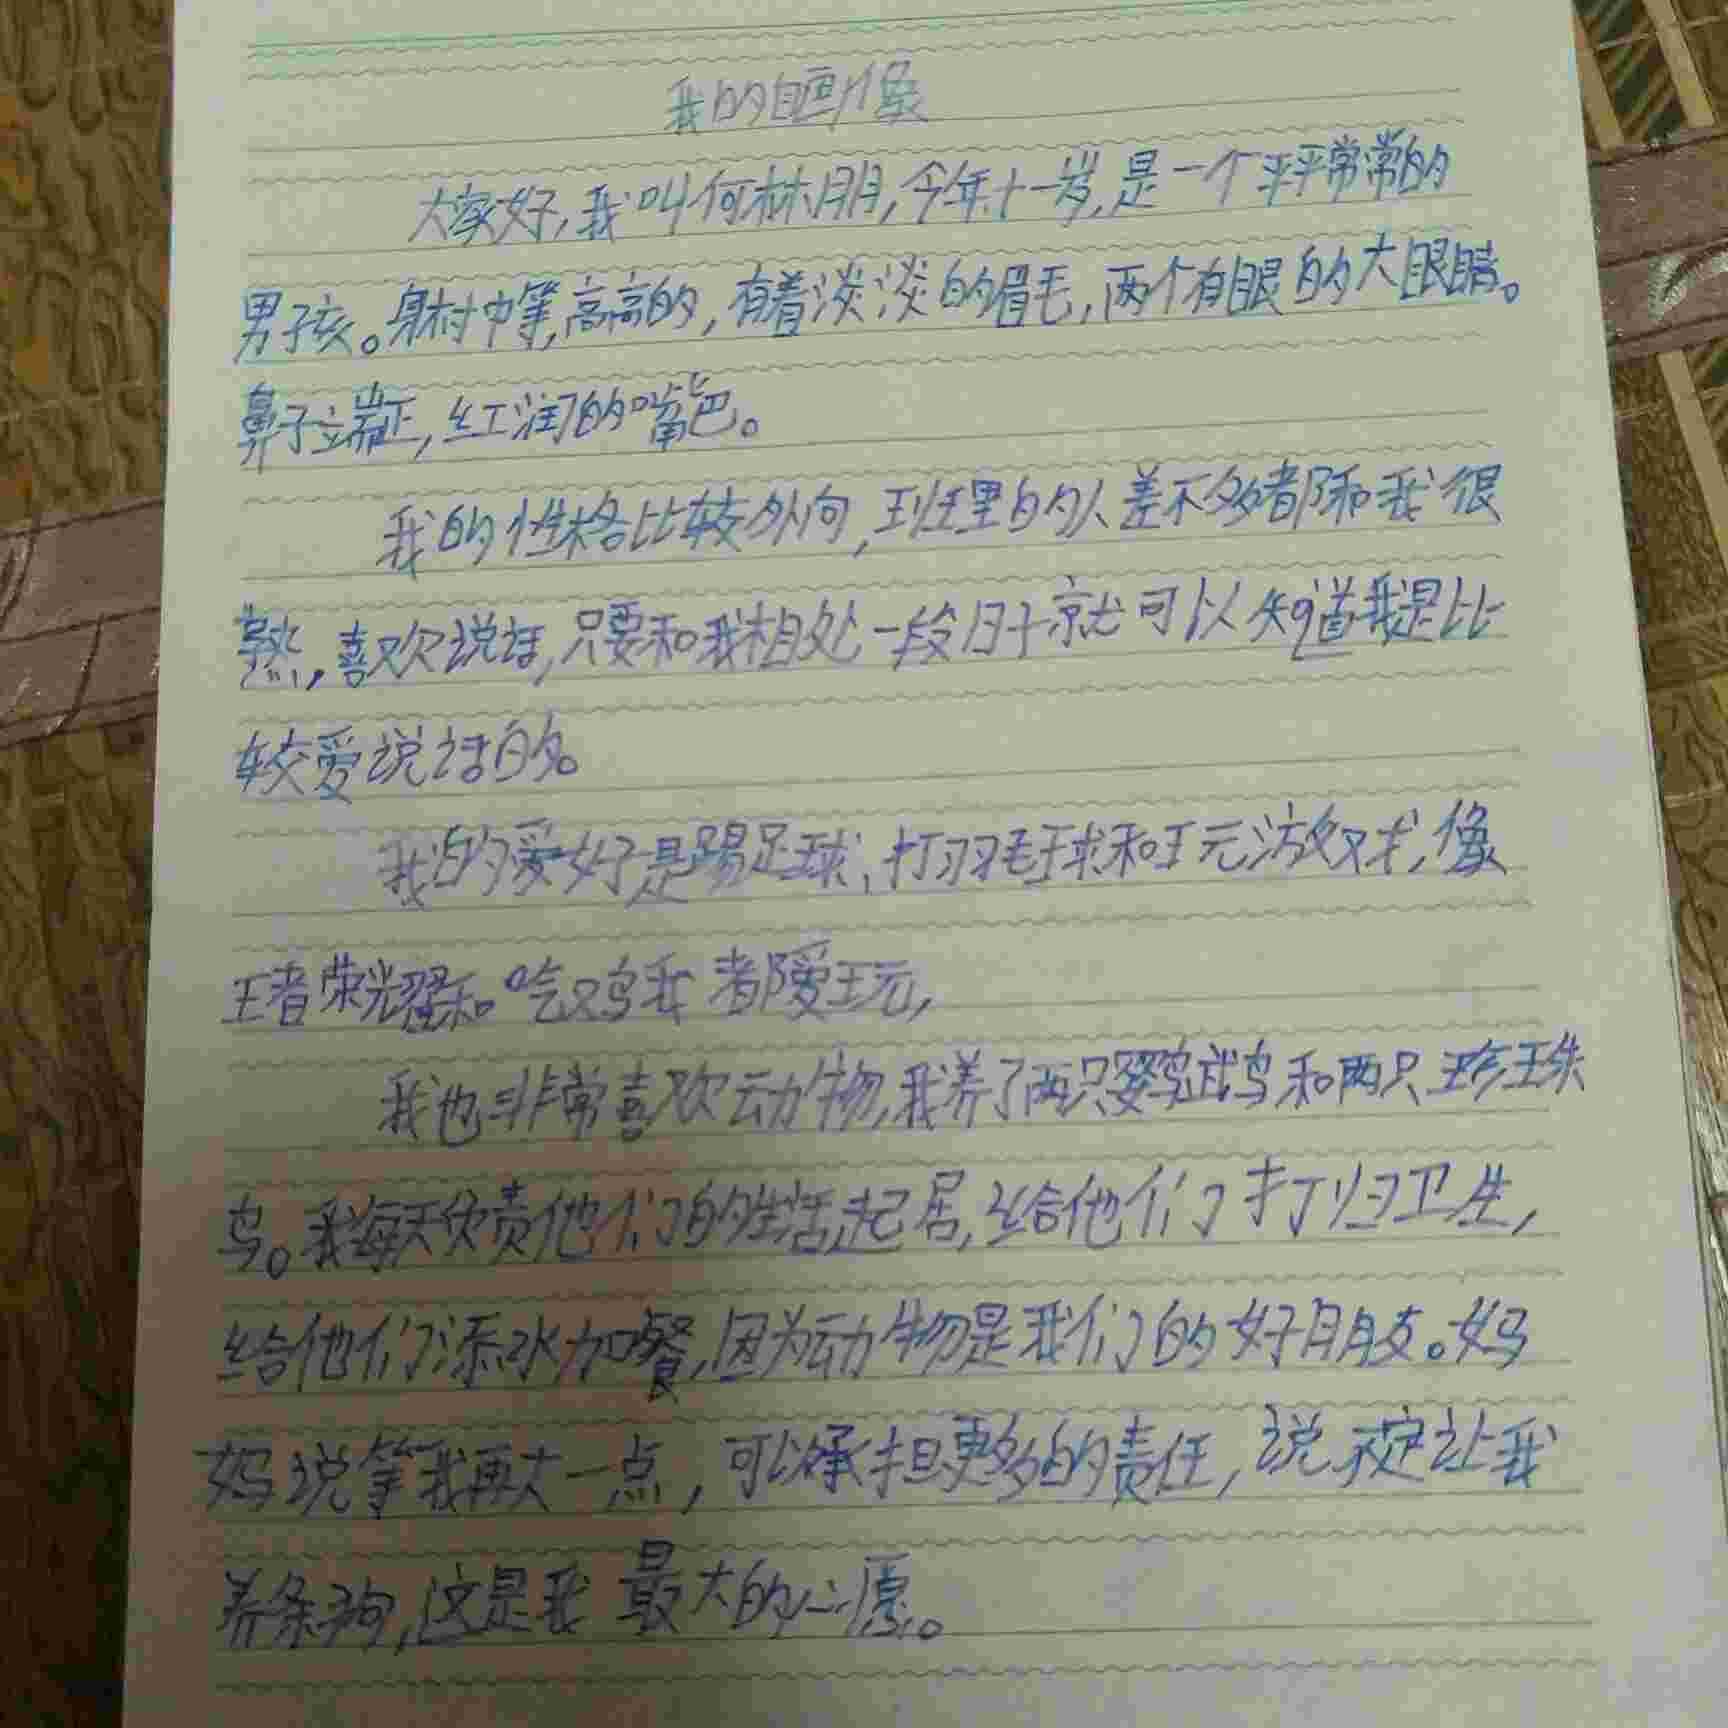 我的自画像
大家好,我叫何林朋,今年十一岁,是一个平平常常的
男孩。身材中等,高高的,有着淡淡的眉毛,两个有眼的大眼睛。
鼻子端正,红润的嘴巴。
我的性格比较外向,班里的人差不多都和我很
熟,喜欢说话,只要和我相处一段日子就可以知道我是比
较爱说话的。
我的爱好是踢足球,打羽毛球和玩游戏,像
王者荣耀和吃鸡我都爱玩,
我也非常喜欢动物,我养了两只鹦鹉鸟和两只珍珠
鸟。我每天负责他们的生活起居,给他们打归卫生,
给他们添水加餐,因为动物是我们的好朋友。妈
妈说等我再大一点,可以承担更多的责任,说不定让我
养条狗,这是我最大的心愿。